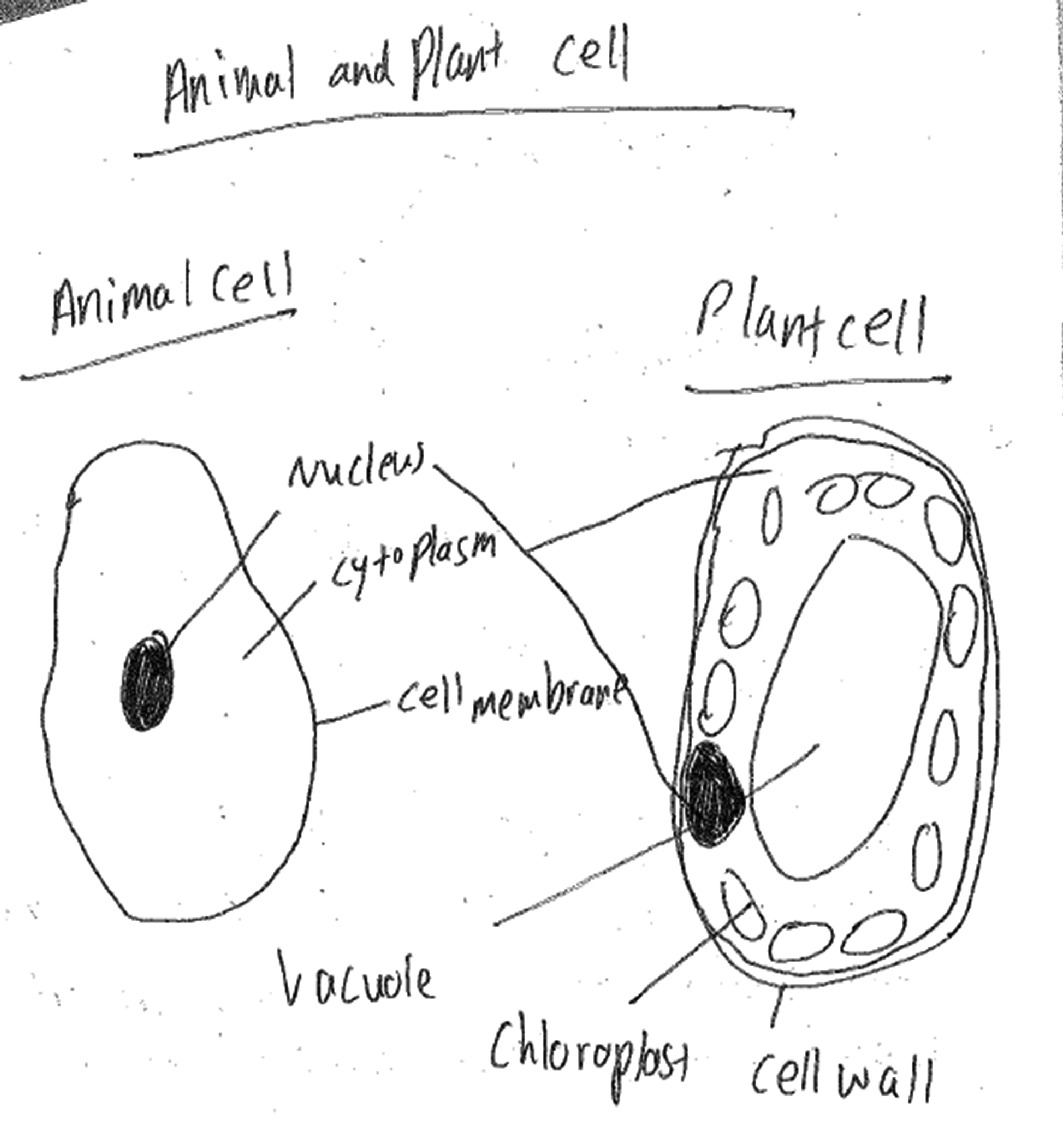 Animal and Plant cell
Animal cell
Plant cell
Nucleus
cytoplasm
cell membrane
Vacuole
Chloroplast
cell wall